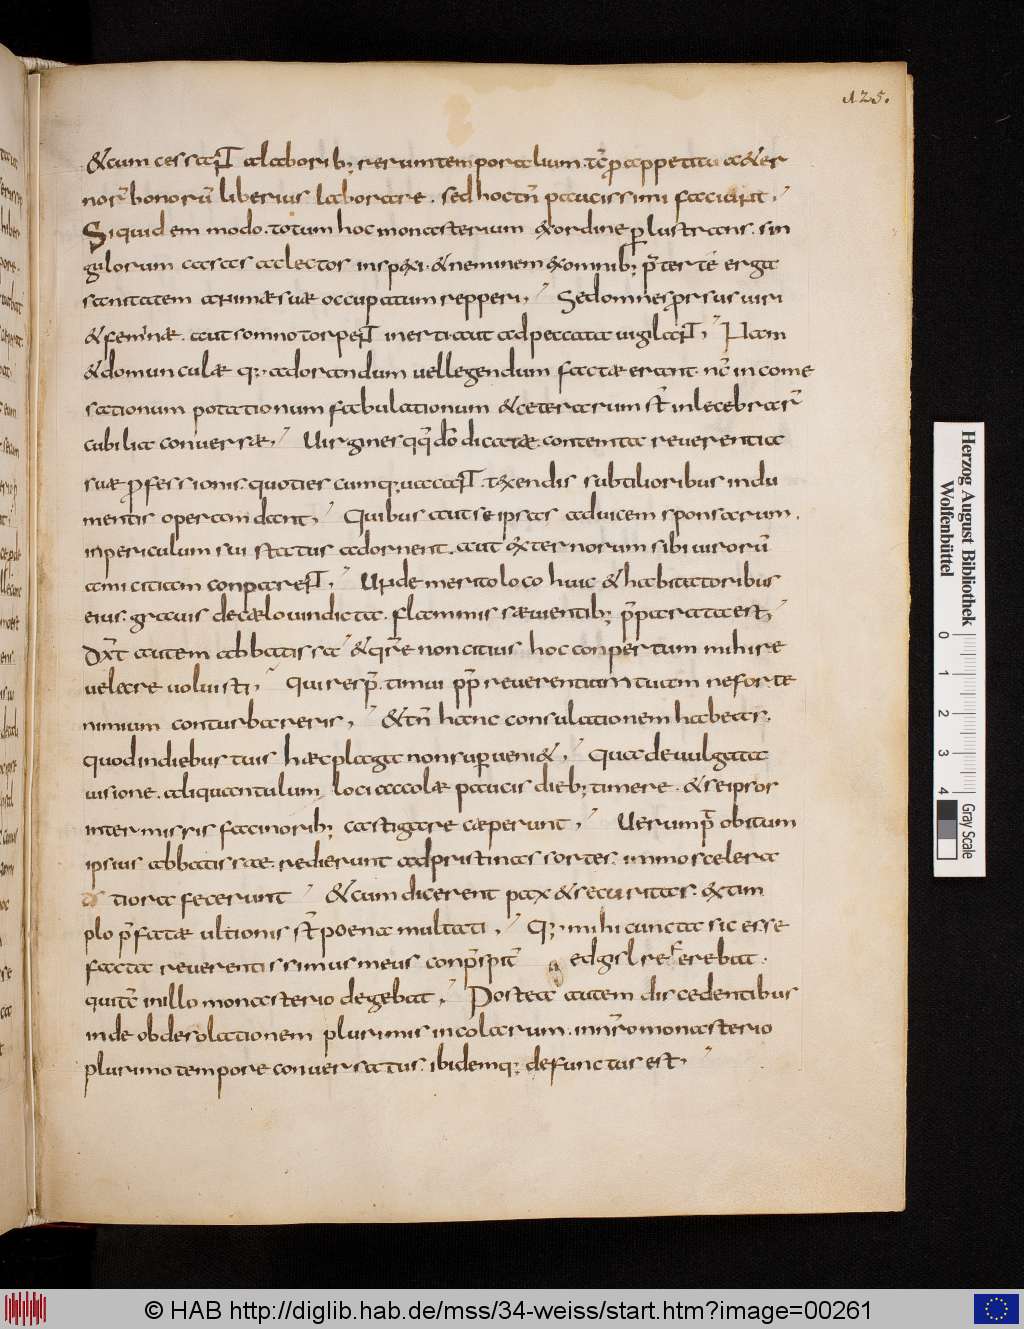 125.
&cum cessare a laborib; rerum temporalium. tc̄ p̄ appetitu aeter
norū bonorū liberius laborare. sed hoc tn̄ paucissimi faciunt,
Siquidem modo. totum hoc monasterium ex ordine ꝑlustrans. sin
gulorum casas ac lectos inspexi. & neminem ex omnib; p̄ter te erga
sanitatem animae suae occupatum repperi, Sed omnes prorsus uiri
& feminae. aut somno torpent inerti aut ad peccata uigilant, Nam
& domunculae q; ad orandum uel legendum factae erant. nc̄ in come
sationum potationum fabulationum & ceterarum st̄ inlecebrarū
cubilia conuersae, Uirgines qq; dō dicatae. contempta reuerentia
suae ꝓfessionis. quotiescumq; uacant. texendis subtilioribus indu
mentis operam dant, Quibus aut se ipsas ad uicem sponsarum.
in periculum sui status adornent. aut externorum sibi uirorū
amicitiam conparent, Unde merito loco huic & habitatoribus
eius. grauis de caelo uindicta. flammis saeuientib; p̄parata est,
Dx̄t autem abbatissa & qr̄e non citius hoc conpertum mihi re
uelare uoluisti, Qui resp̄. timui pp̄ reuerentiam tuam ne forte
nimium conturbareris, & tn̄ hanc consulationem habeas.
quod in diebus tuis haec plaga non suꝑueniet, Qua deuulgata
uisione. aliquantulum loci accolae paucis dieb; timere. & se ipsos
intermissis facinorib; castigare caeperunt, Uerum p̄ obitum
ipsius abbatissae. redierunt ad pristinas sordes. immo scelera
tiora fecerunt & cum dicerent pax & securitas. extim
plo p̄fatae ultionis st̄ poena multati, Q; mihi cuncta sic esse
facta reuerentissimus meus conp̄sp̄it̄ aedgisl referebat.
qui tc̄ in illo monasterio degebat, Postea autem discedentibus
inde ob desolationem plurimis incolarum. in nr̄o monasterio
plurimo tempore conuersatus. ibidemq; defunctus est,
Herzog August Bibliothek
Wolfenbüttel
0 1 2 3 4
Gray Scale
© HAB http://diglib.hab.de/mss/34-weiss/start.htm?image=00261